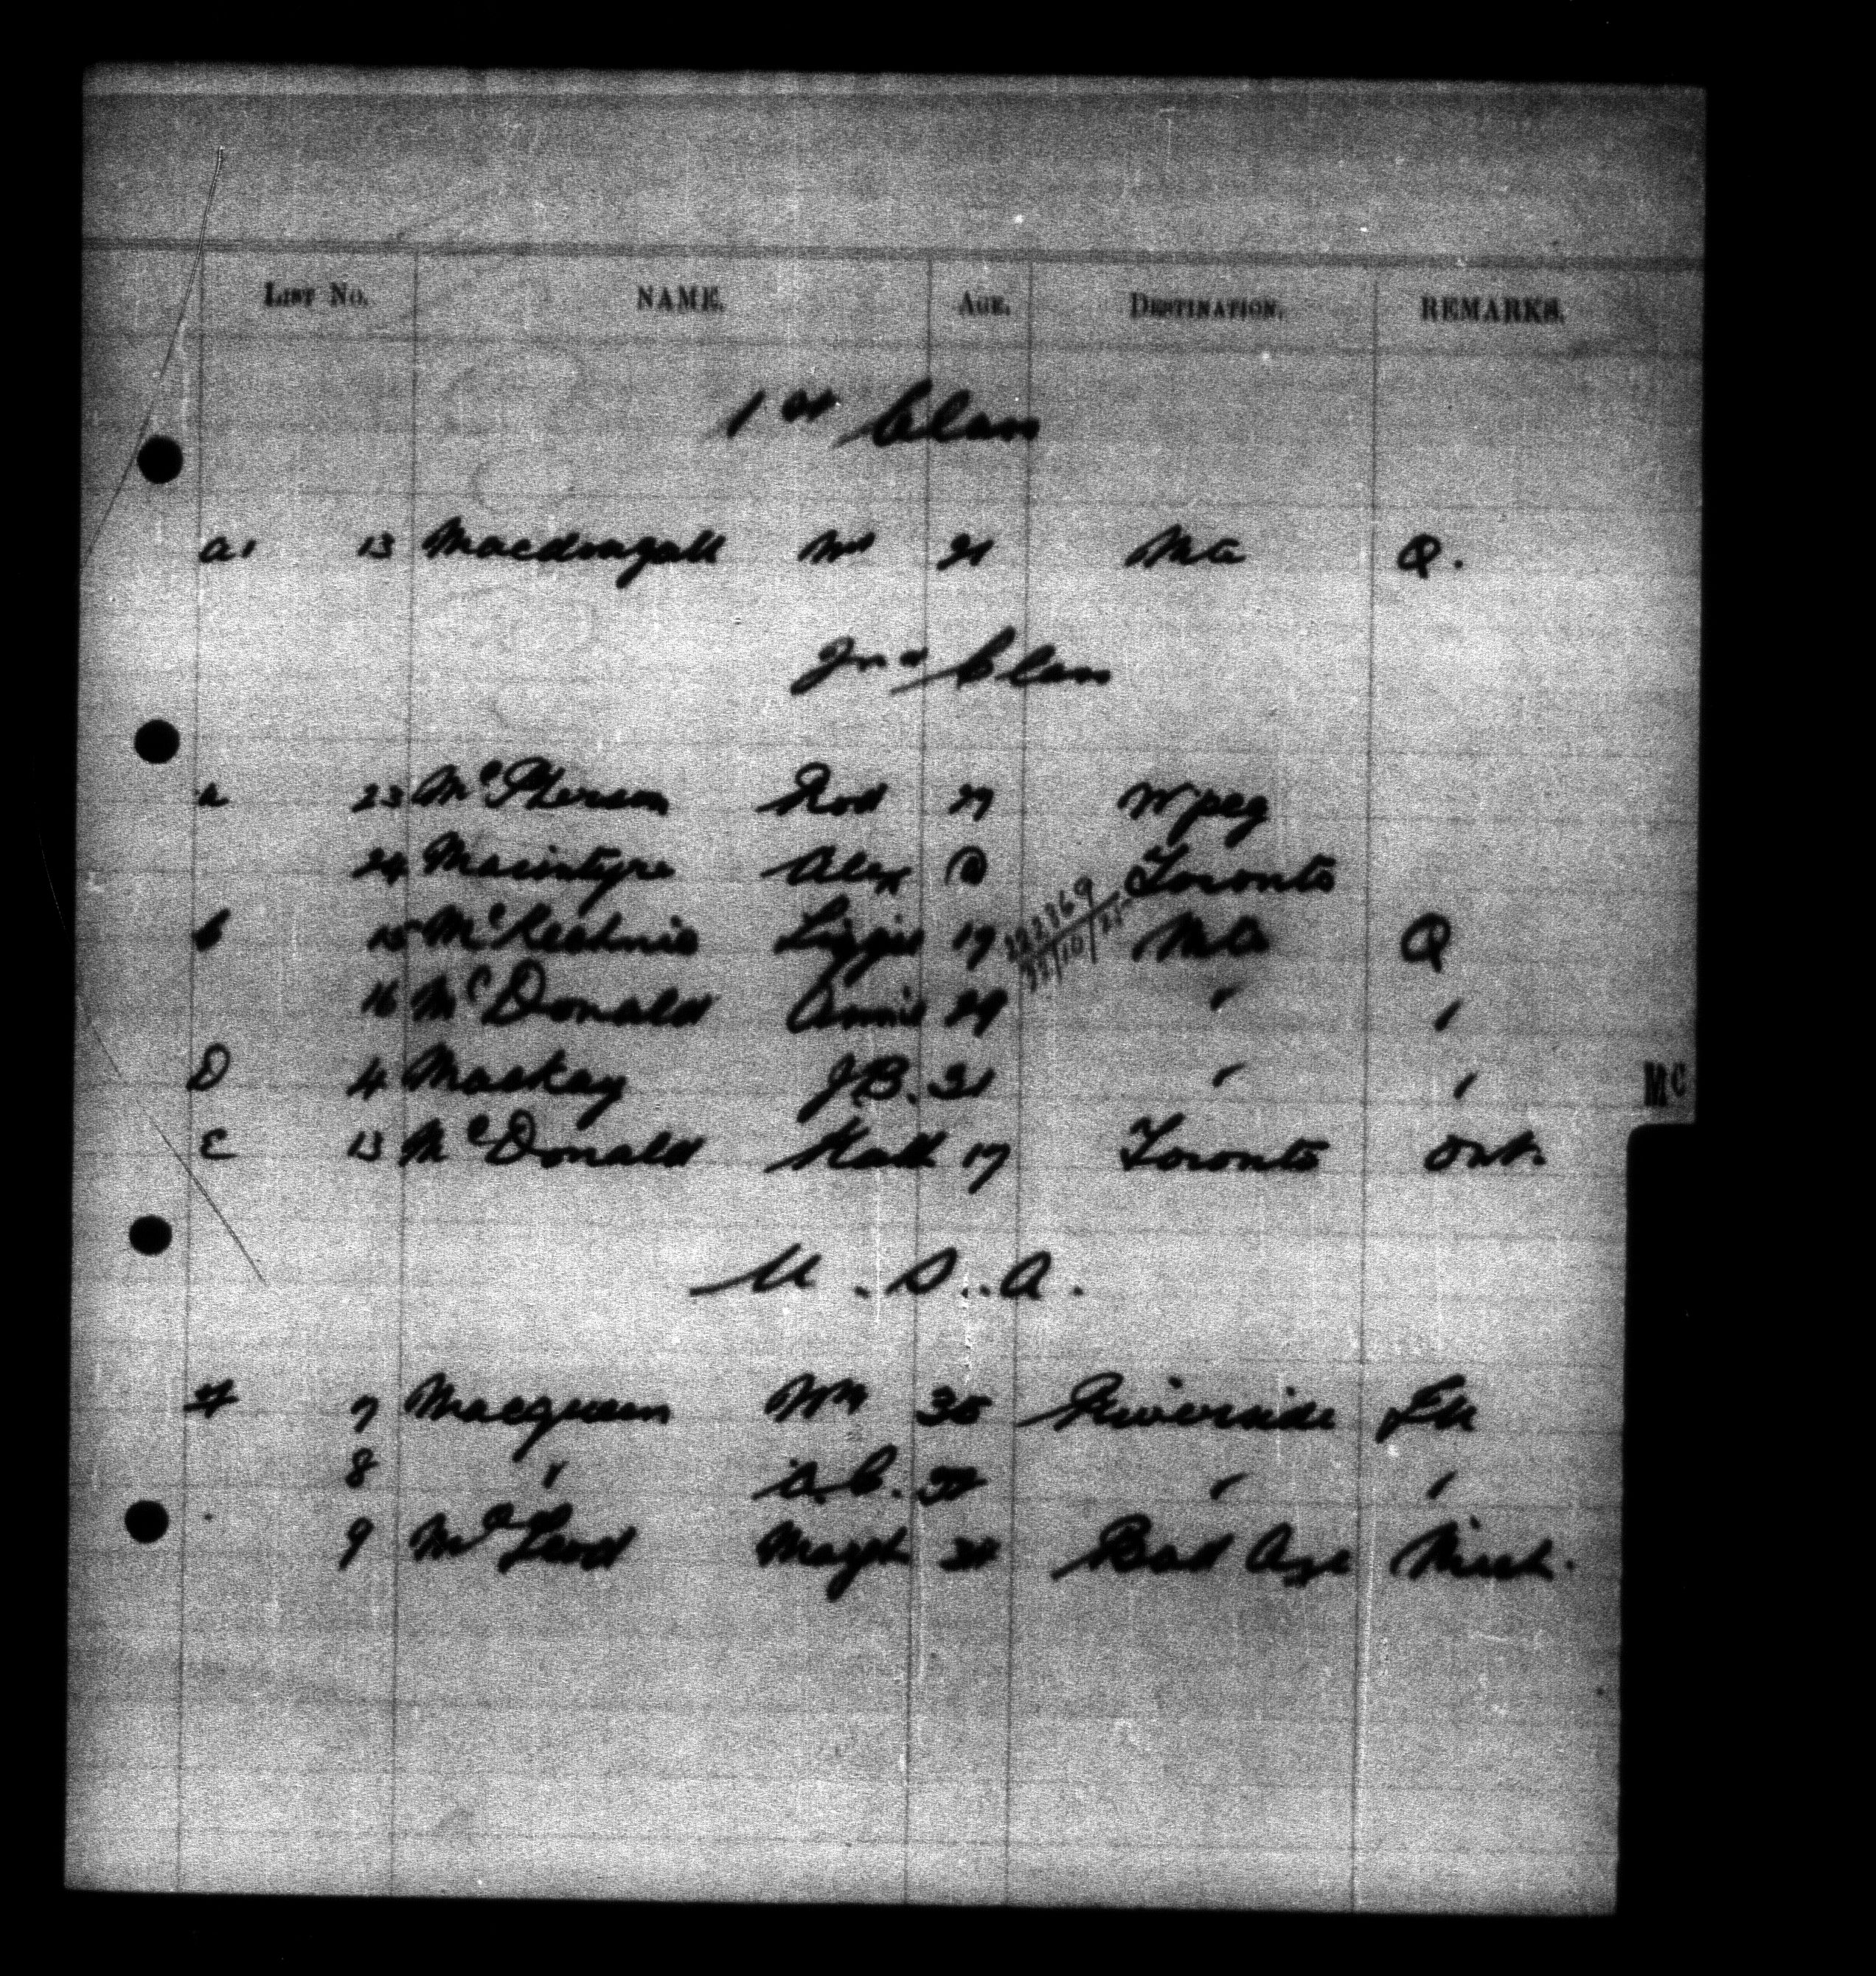 LIST No. NAME. AGE. DESTINATION. REMARKS.
1st Class
a1 13 Macdougall Mrs 21 Mtl Q.
2nd Class
a 23 McPherson Rod 27 W'peg
24 Macintyre Alex Toronto
222869
b 15 McKechnie Lizzie 17 22/10/25 Mtl Q
16 McDonald Annie 29 " "
D 4 Mackay J.B. 31 " "
E 13 McDonald Kath 17 Toronto Ont.
Mc
U.S.A.
7 Macqueen Wm 35 Riverside
8 " A.C. 32 " "
9 McLeod Magt Bad Axe Mich.